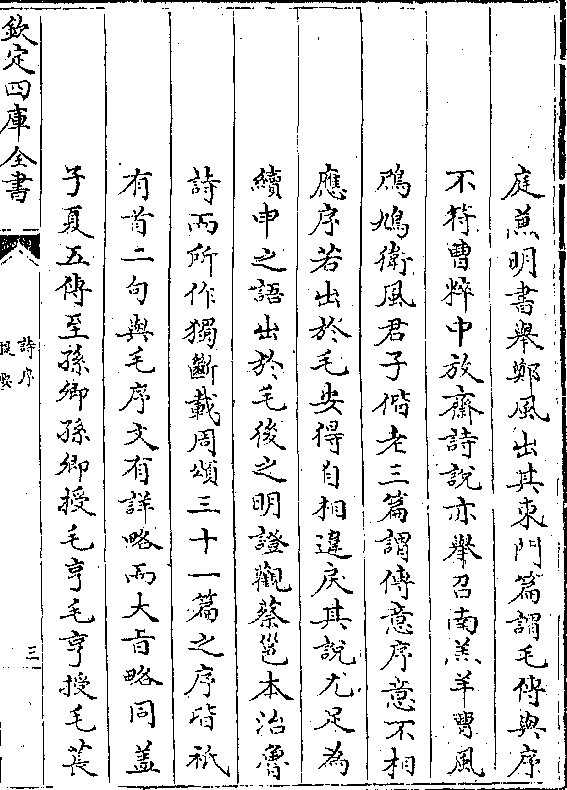 庭蕙明書舉鄭風出其東門篇謂毛傳與序
不符曹粹中放齋詩說亦舉召南羔羊曹風
鳲鳩衛風君子偕老三篇謂傳意序意不相
應序若出於毛安得自相違戾其說尤足為
續申之語出於毛後之明證觀蔡邕本治魯
詩而所作獨斷載周頌三十一篇之序皆祇
有首二句與毛序文有詳略而大旨略同蓋
子夏五傳至孫卿孫卿授毛亨毛亨授毛萇
詩序
提要
三
欽定四庫全書